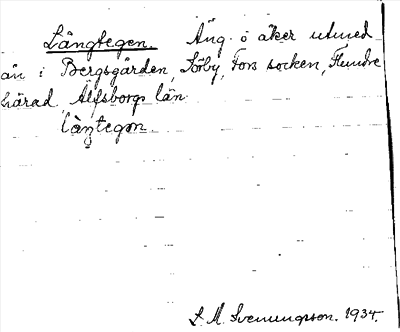 Långtegen. Äng o åker utmed
ån i Bergsgården, Torby, Fors socken, Flundre
härad, Älfsborgs län
làŋtegɔn
S. M. Svenungsson. 1934.